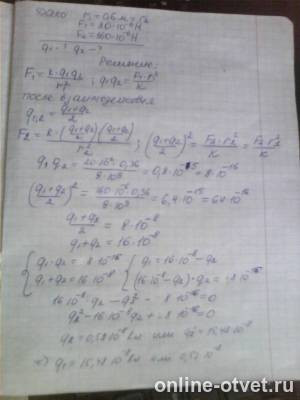 Дано r₁ = 0,6 м = r₂
F₁ = 20·10⁻⁶ Н
F₂ = 160·10⁻⁶ Н
q₁ - ? q₂ - ?
Решение:
F₁ = k·q₁q₂/r₁² ; q₁q₂ = F₁·r₁²/k
после взаимодействия
q₁,₂ = (q₁+q₂)/2
F₂ = k·((q₁+q₂)/2)((q₁+q₂)/2)/r₂² ; ((q₁+q₂)/2)² = F₂·r₂²/k = F₂ r₂²/k
q₁ q₂ = 20·10⁻⁶·0,36/9·10⁹ = 0,8·10⁻¹⁵ = 8·10⁻¹⁶
((q₁+q₂)/2)² = 160·10⁻⁶·0,36/9·10⁹ = 6,4·10⁻¹⁵ = 64·10⁻¹⁶
(q₁+q₂)/2 = 8·10⁻⁸
q₁+q₂ = 16·10⁻⁸
{ q₁·q₂ = 8·10⁻¹⁶ { q₁ = 16·10⁻⁸ - q₂
{ q₁+q₂ = 16·10⁻⁸ { (16·10⁻⁸ - q₂)·q₂ = 8·10⁻¹⁶
16·10⁻⁸·q₂ - q₂² - 8·10⁻¹⁶ = 0
q₂² - 16·10⁻⁸q₂ + 8·10⁻¹⁶ = 0
q₂ = 0,52·10⁻⁸ Кл или q₂ = 15,48·10⁻⁸ Кл
=> q₁ = 15,48·10⁻⁸ Кл или 0,52·10⁻⁸
online-otvet.ru